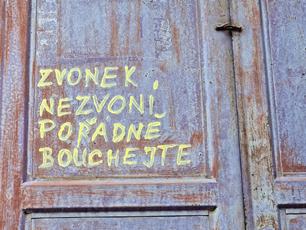 ZVONEK
NEZVONÍ,
POŘÁDNĚ
BOUCHEJTE